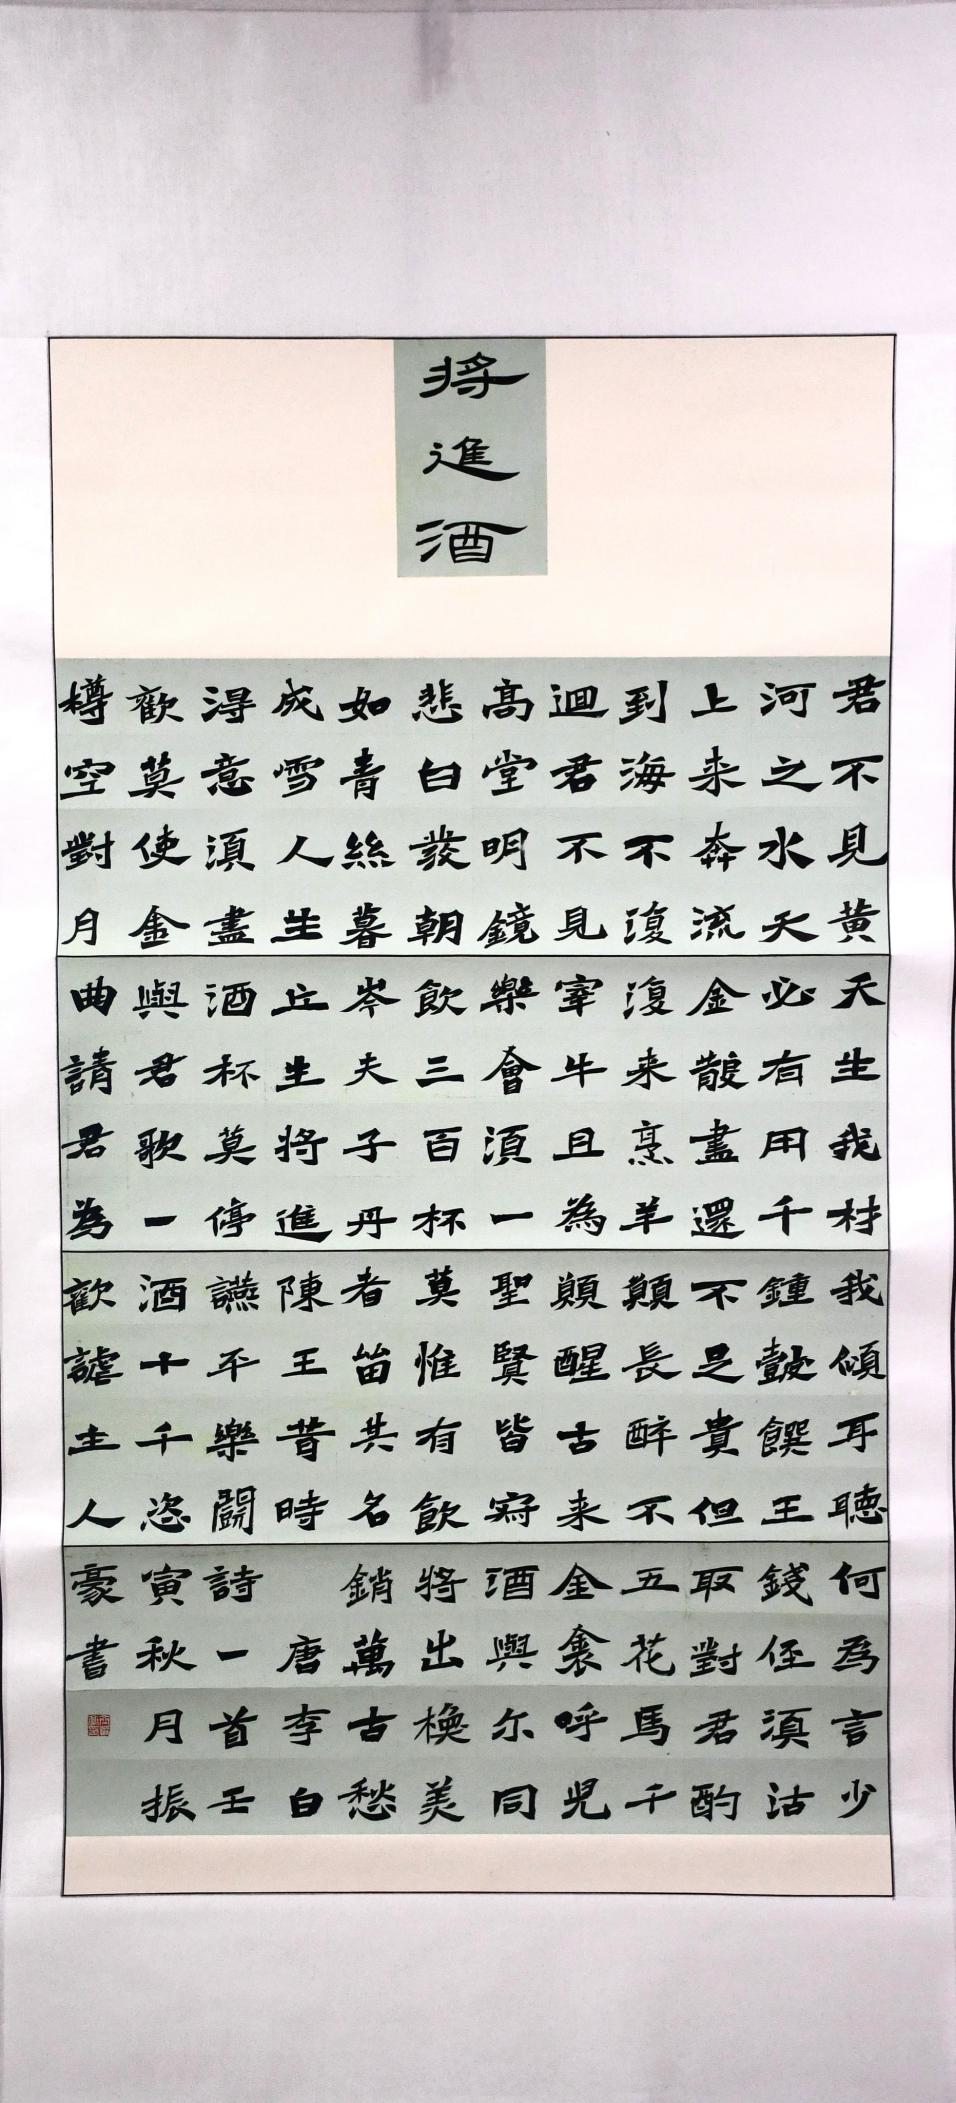 將進酒
君不見黄
河之水天
上来奔流
到海不復
迴君不見
高堂明鏡
悲白發朝
如青絲暮
成雪人生
得意湏盡
歡莫使金
樽空對月
天生我材
必有用千
金散盡還
復来烹羊
宰牛且為
樂會湏一
飲三百杯
岑夫子丹
丘生將進
酒杯莫停
與君歌一
曲請君為
我傾耳聽
鍾鼓饌王
不足貴但
願長醉不
願醒古来
聖賢皆寂
莫惟有飲
者留其名
陳王昔時
讌平樂鬪
酒十千恣
歡謔主人
何為言少
錢径湏沽
取對君酌
五花馬千
金裘呼児
酒與尔同
將出換美
銷萬古愁
唐李白
詩一首壬
寅秋月振
豪書